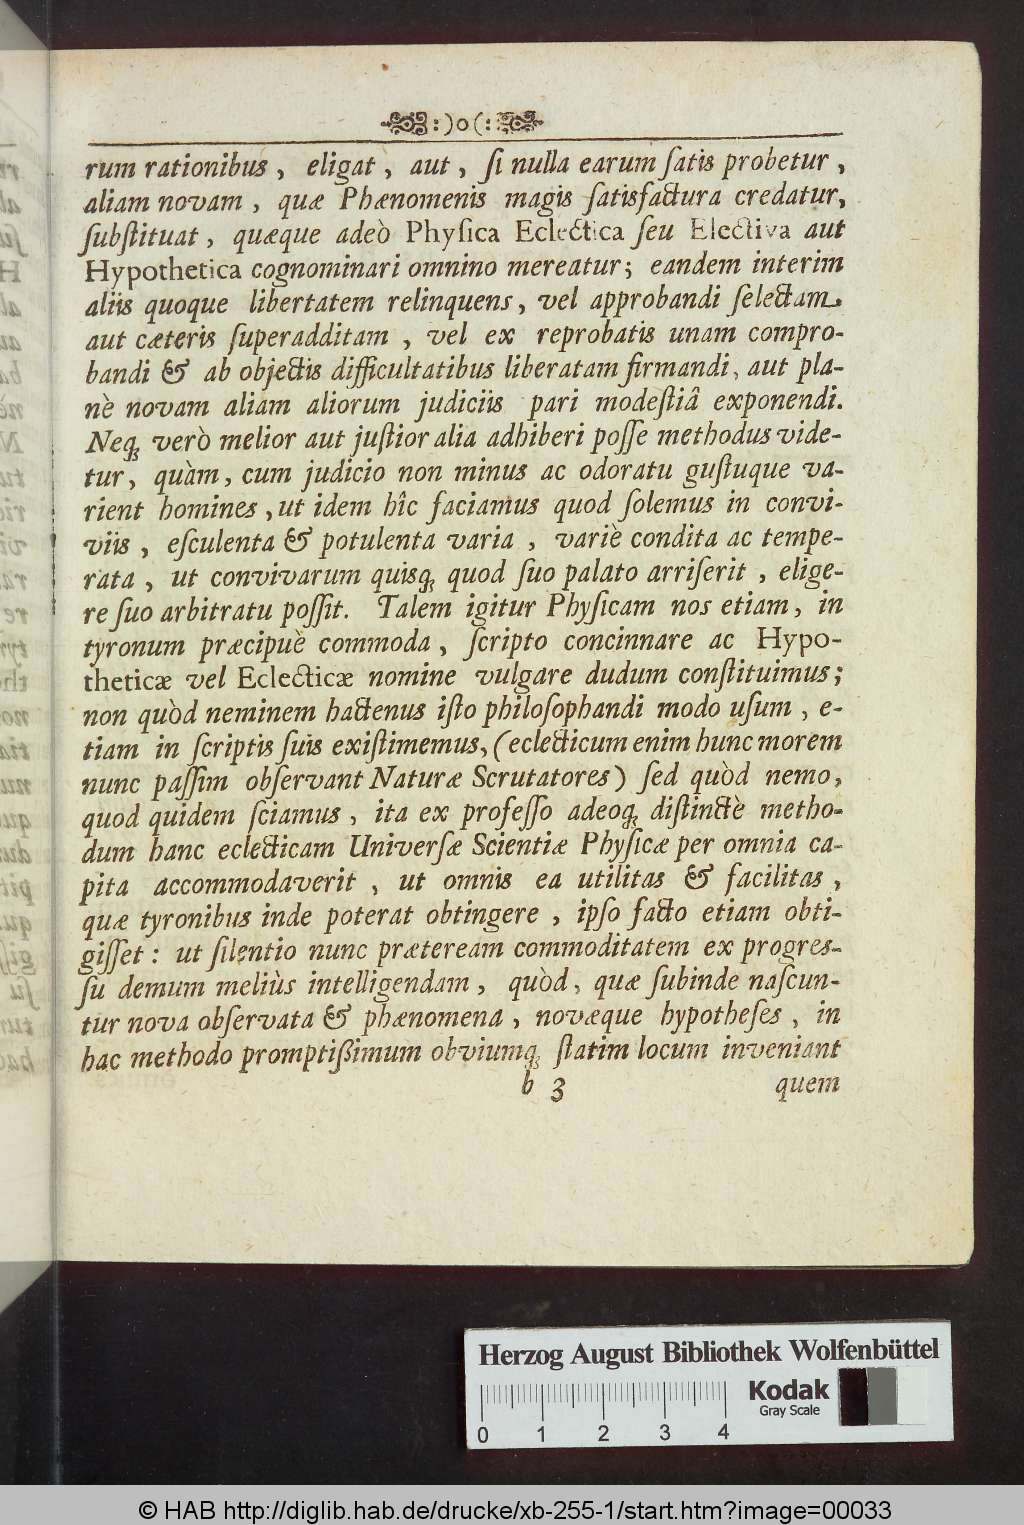 :)o(:
rum rationibus, eligat, aut, ſi nulla earum ſatis probetur,
aliam novam, quæ Phænomenis magis ſatisfactura credatur,
ſubſtituat, quæque adeò Phyſica Eclectica ſeu Electiva aut
Hypothetica cognominari omnino mereatur; eandem interim
aliis quoque libertatem relinquens, vel approbandi ſelectam
aut cæteris ſuperadditam, vel ex reprobatis unam compro-
bandi & ab objectis difficultatibus liberatam firmandi, aut pla-
nè novam aliam aliorum judiciis pari modeſtiâ exponendi.
Neq; verò melior aut juſtior alia adhiberi poſſe methodus vide-
tur, quàm, cum judicio non minus ac odoratu guſtuque va-
rient homines, ut idem hîc faciamus quod ſolemus in convi-
viis, eſculenta & potulenta varia, variè condita ac tempe-
rata, ut convivarum quisq; quod ſuo palato arriſerit, elige-
re ſuo arbitratu poſſit. Talem igitur Phyſicam nos etiam, in
tyronum præcipuè commoda, ſcripto concinnare ac Hypo-
theticæ vel Eclecticæ nomine vulgare dudum conſtituimus;
non quòd neminem hactenus iſto philoſophandi modo uſum, e-
tiam in ſcriptis ſuis exiſtimemus, (eclecticum enim hunc morem
nunc paſſim obſervant Naturæ Scrutatores) ſed quòd nemo,
quod quidem ſciamus, ita ex profeſſo adeoq; diſtinctè metho-
dum hanc eclecticam Univerſæ Scientiæ Phyſicæ per omnia ca-
pita accommodaverit, ut omnis ea utilitas & facilitas,
quæ tyronibus inde poterat obtingere, ipſo facto etiam obti-
giſſet: ut ſilentio nunc præteream commoditatem ex progreſ-
ſu demum meliùs intelligendam, quòd, quæ ſubinde naſcun-
tur nova obſervata & phænomena, novæque hypotheſes, in
hac methodo promptißimum obviumq; ſtatim locum inveniant
b 3 quem
Herzog August Bibliothek Wolfenbüttel
Kodak
Gray Scale
0 1 2 3 4
© HAB http://diglib.hab.de/drucke/xb-255-1/start.htm?image=00033